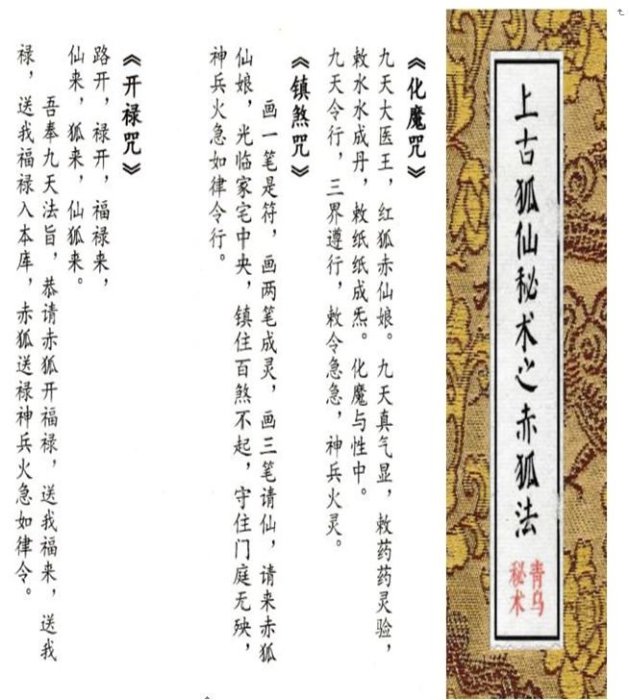 上古狐仙秘术之赤狐法
青乌
秘术
《化魔咒》
九天大医王，红狐赤仙娘。九天真气显，敕药药灵验，
敕水水成丹，敕纸纸成炁。化魔与性中。
九天令行，三界遵行，敕令急急，神兵火灵。
《镇煞咒》
画一笔是符，画两笔成灵，画三笔请仙，请来赤狐
仙娘，光临家宅中央，镇住百煞不起，守住门庭无殃，
神兵火急如律令行。
《开禄咒》
路开，禄开，福禄来，
仙来，狐来，仙狐来。
吾奉九天法旨，恭请赤狐开福禄，送我福来，送我
禄，送我福禄入本库，赤狐送禄神兵火急如律令。